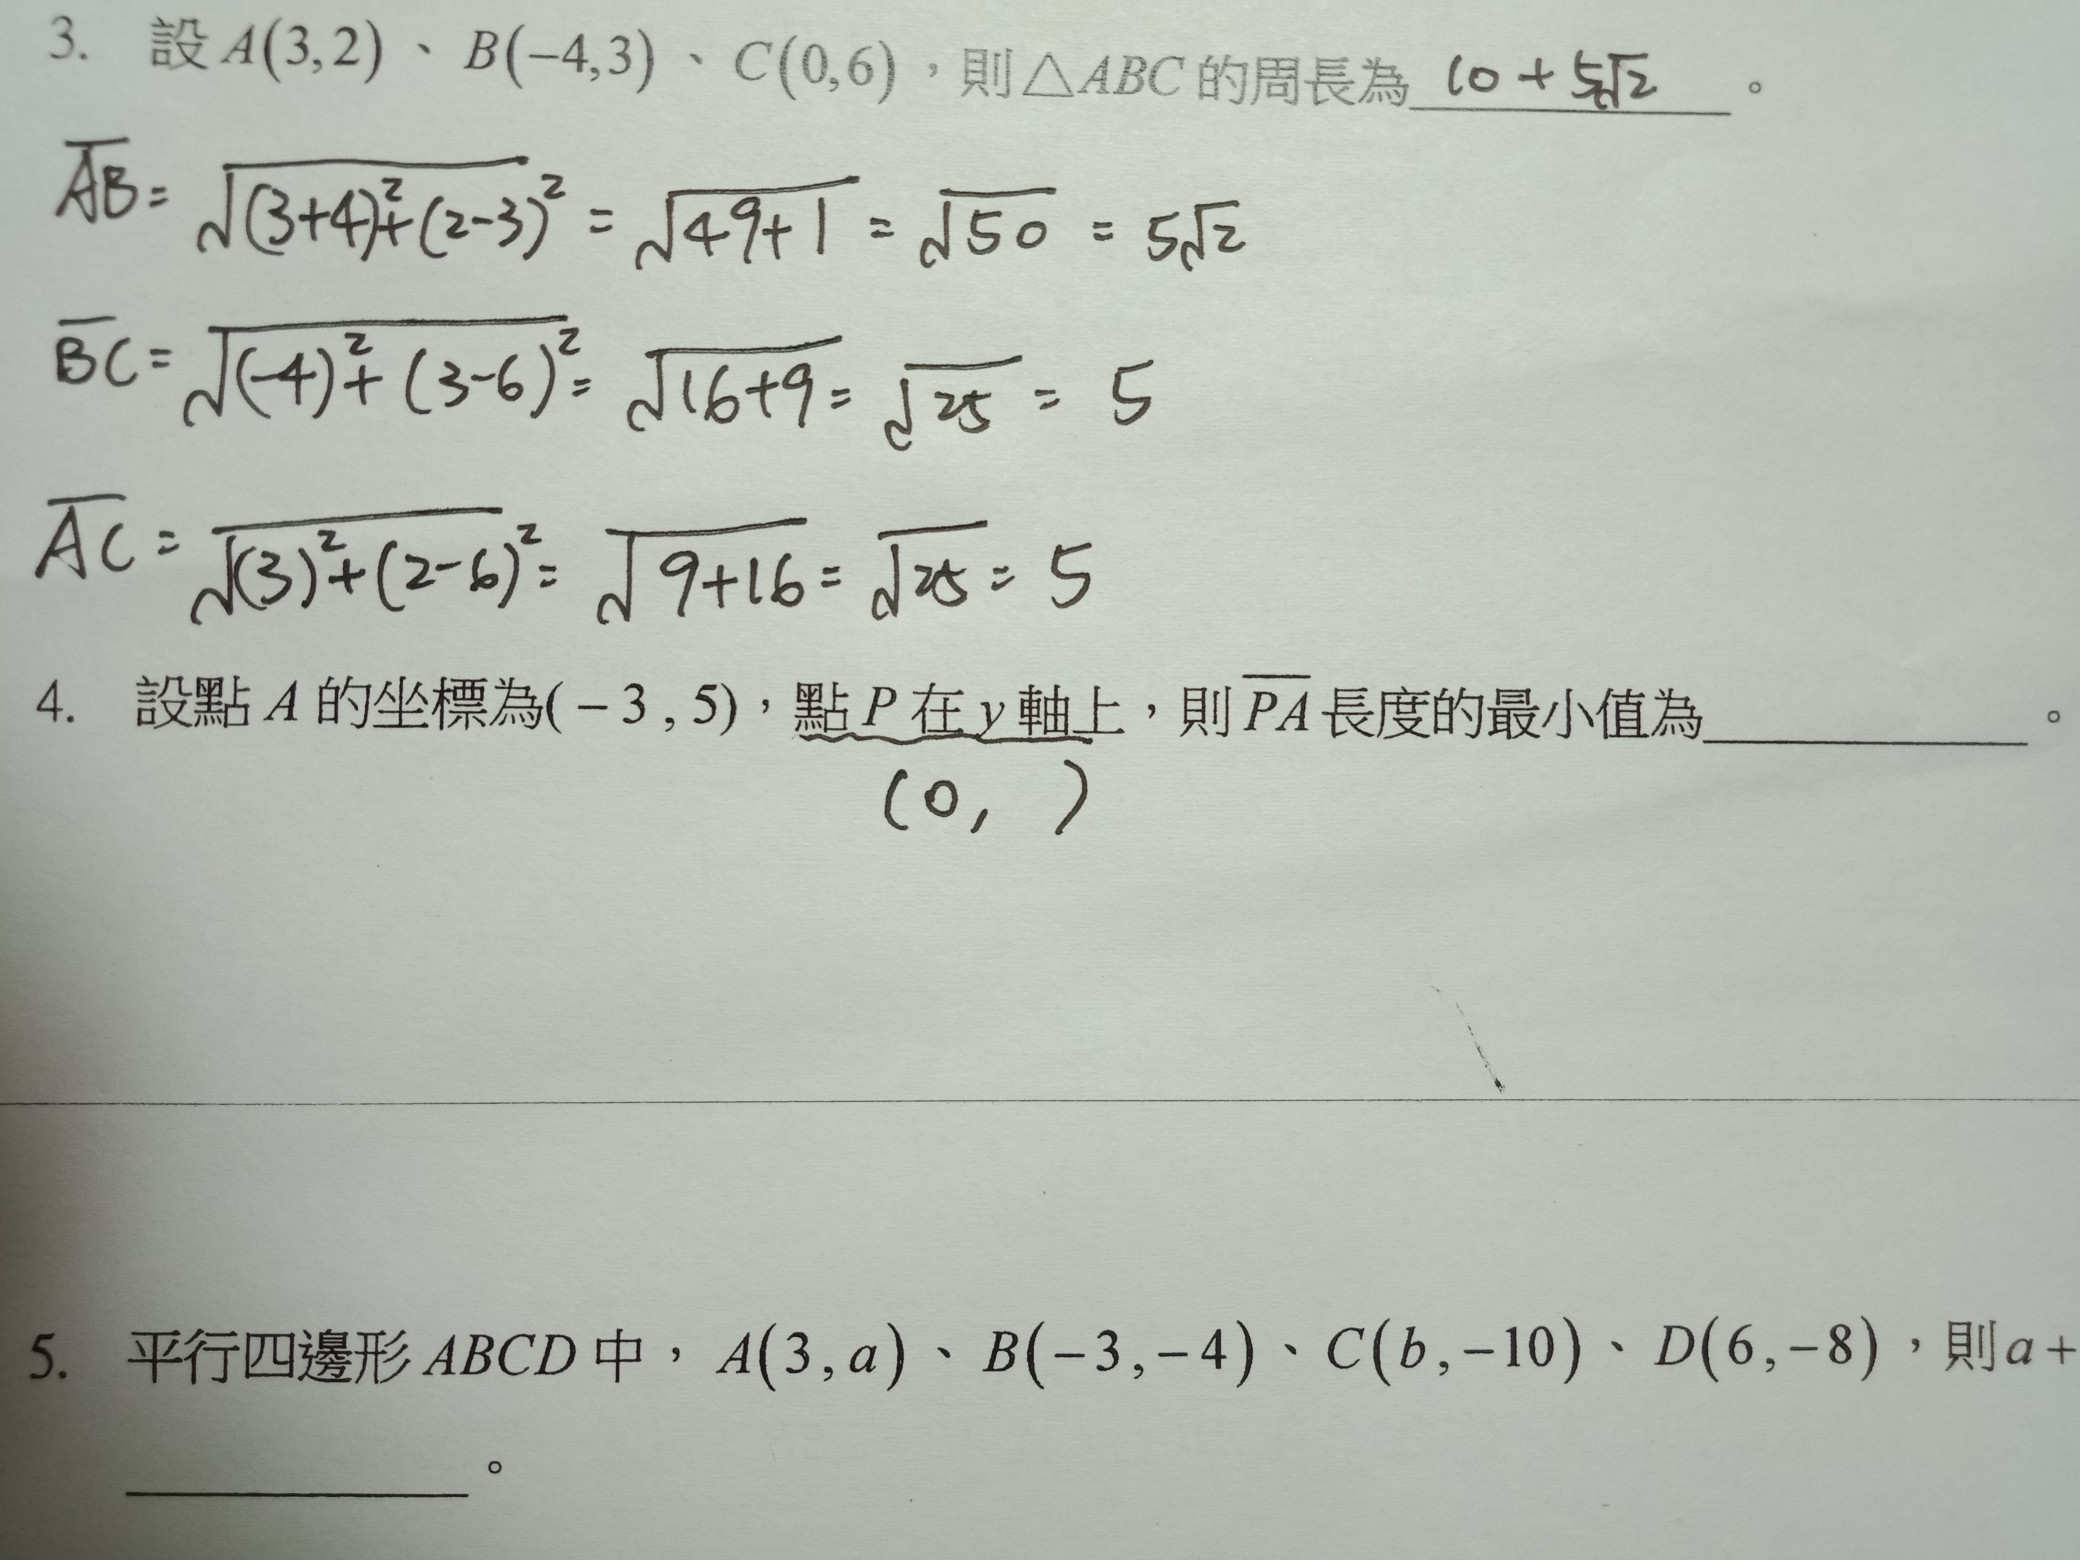 3. 設 A(3,2)、B(−4,3)、C(0,6)，則△ABC 的周長為 10+5√2 。
AB= √(3+4)²+(2-3)² = √49+1 = √50 = 5√2
BC= √(-4)²+(3-6)² = √16+9 = √25 = 5
AC= √(3)²+(2-6)² = √9+16 = √25 = 5
4. 設點 A 的坐標為(−3,5)，點 P 在 y 軸上，則 PA 長度的最小值為____________。
(0, )
5. 平行四邊形 ABCD 中，A(3,a)、B(−3,−4)、C(b,−10)、D(6,−8)，則 a+
____________。